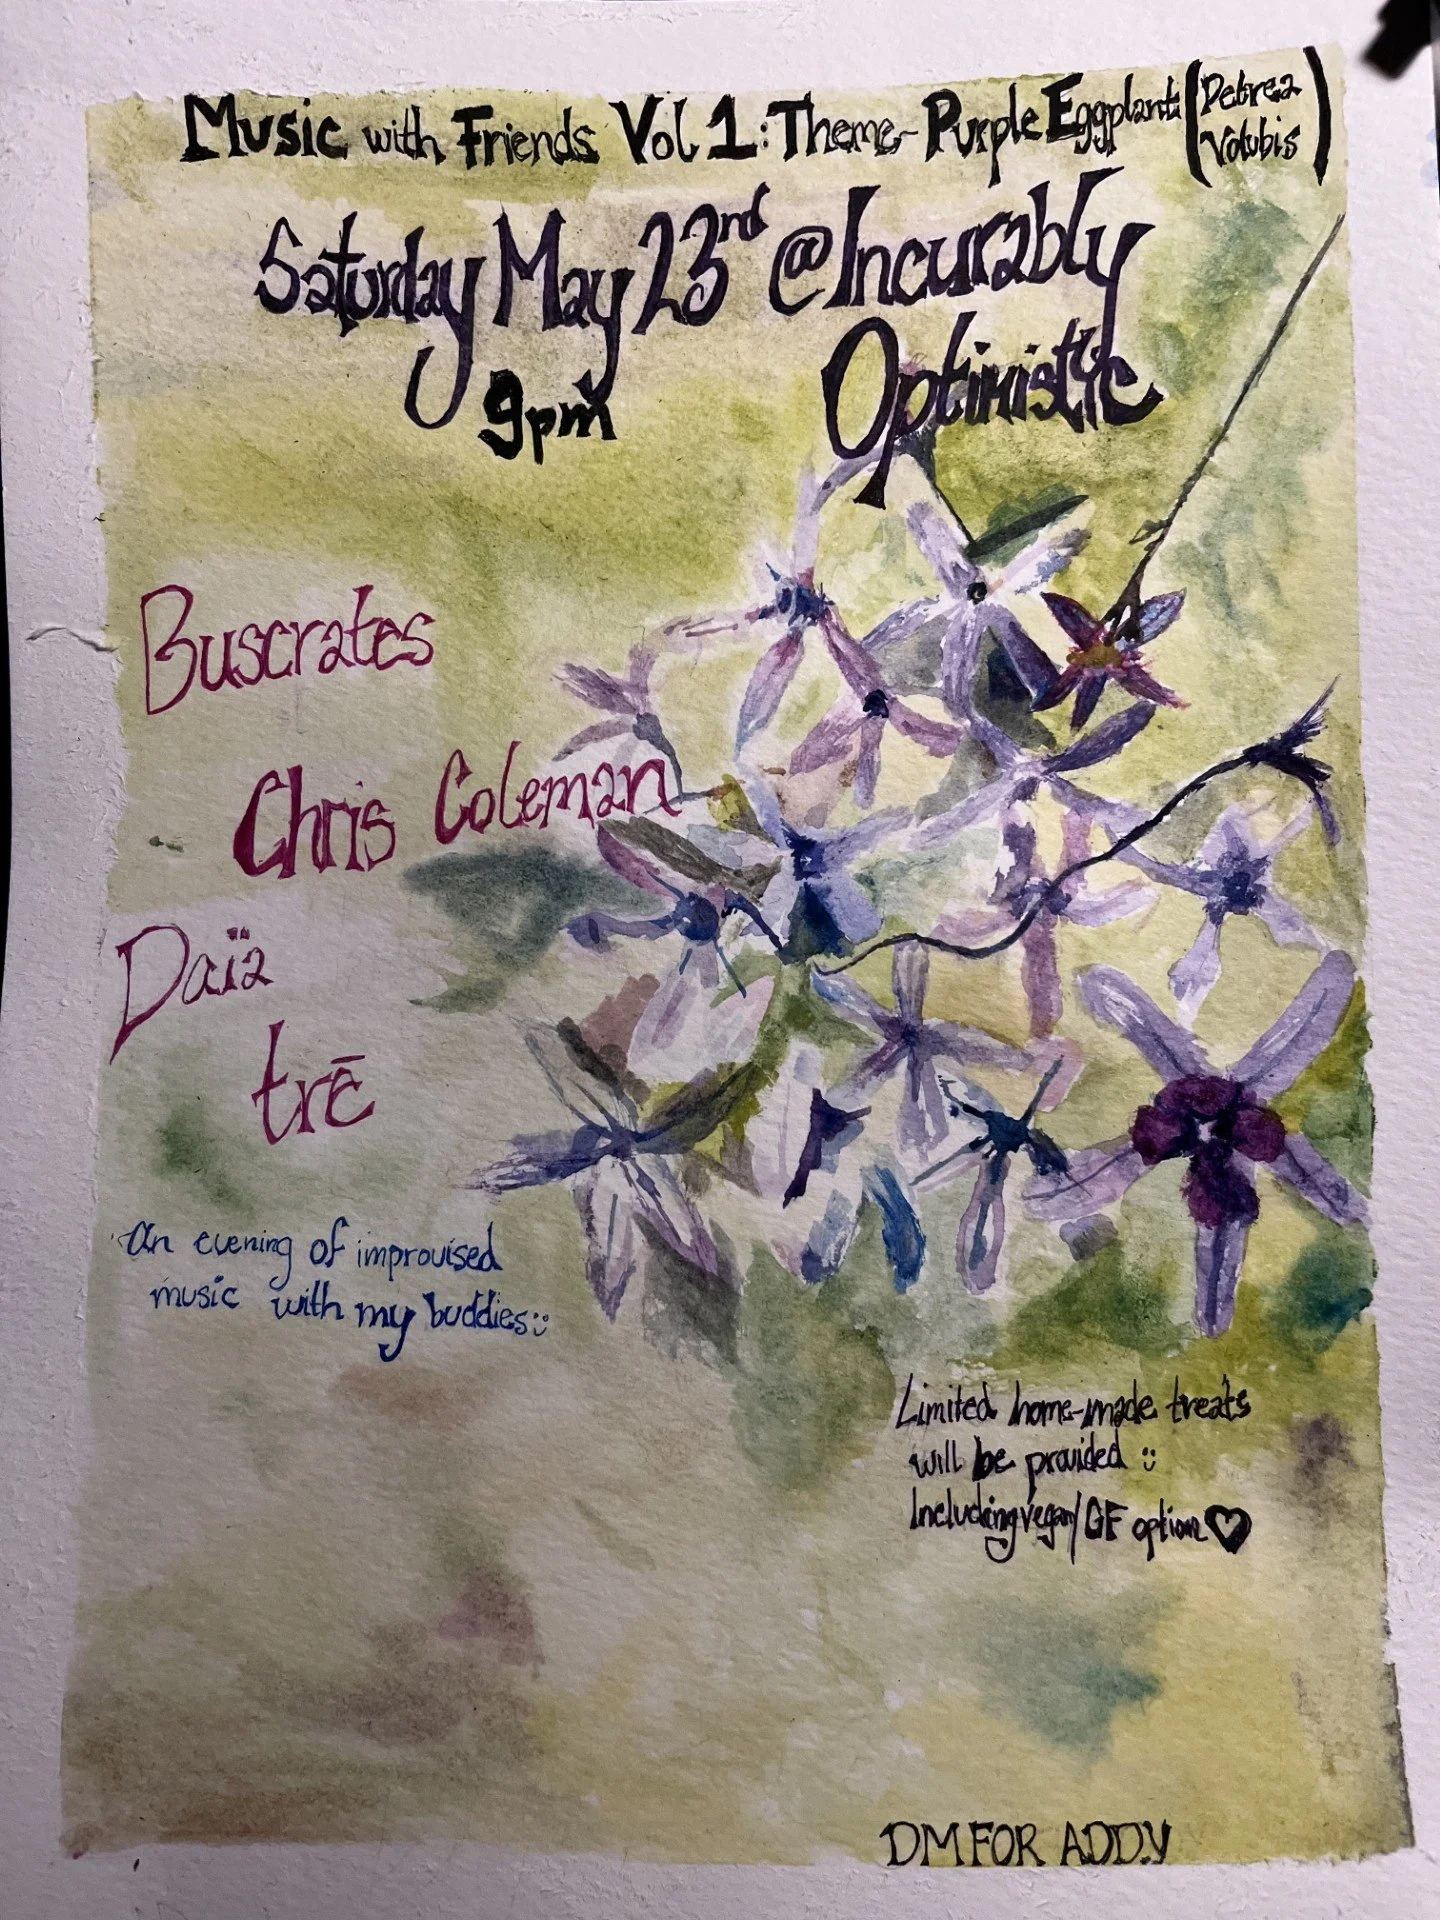 Music with Friends Vol 1: Theme- Purple Eggplant (Detrea
Volubis)
Saturday May 23rd @ Incurably
Optimistic
9pm
Buscrates
Chris Coleman
Daïa
trē
An evening of improvised
music with my buddies :)
Limited home-made treats
will be provided :)
Including vegan/GF option ♡
DM FOR ADDY